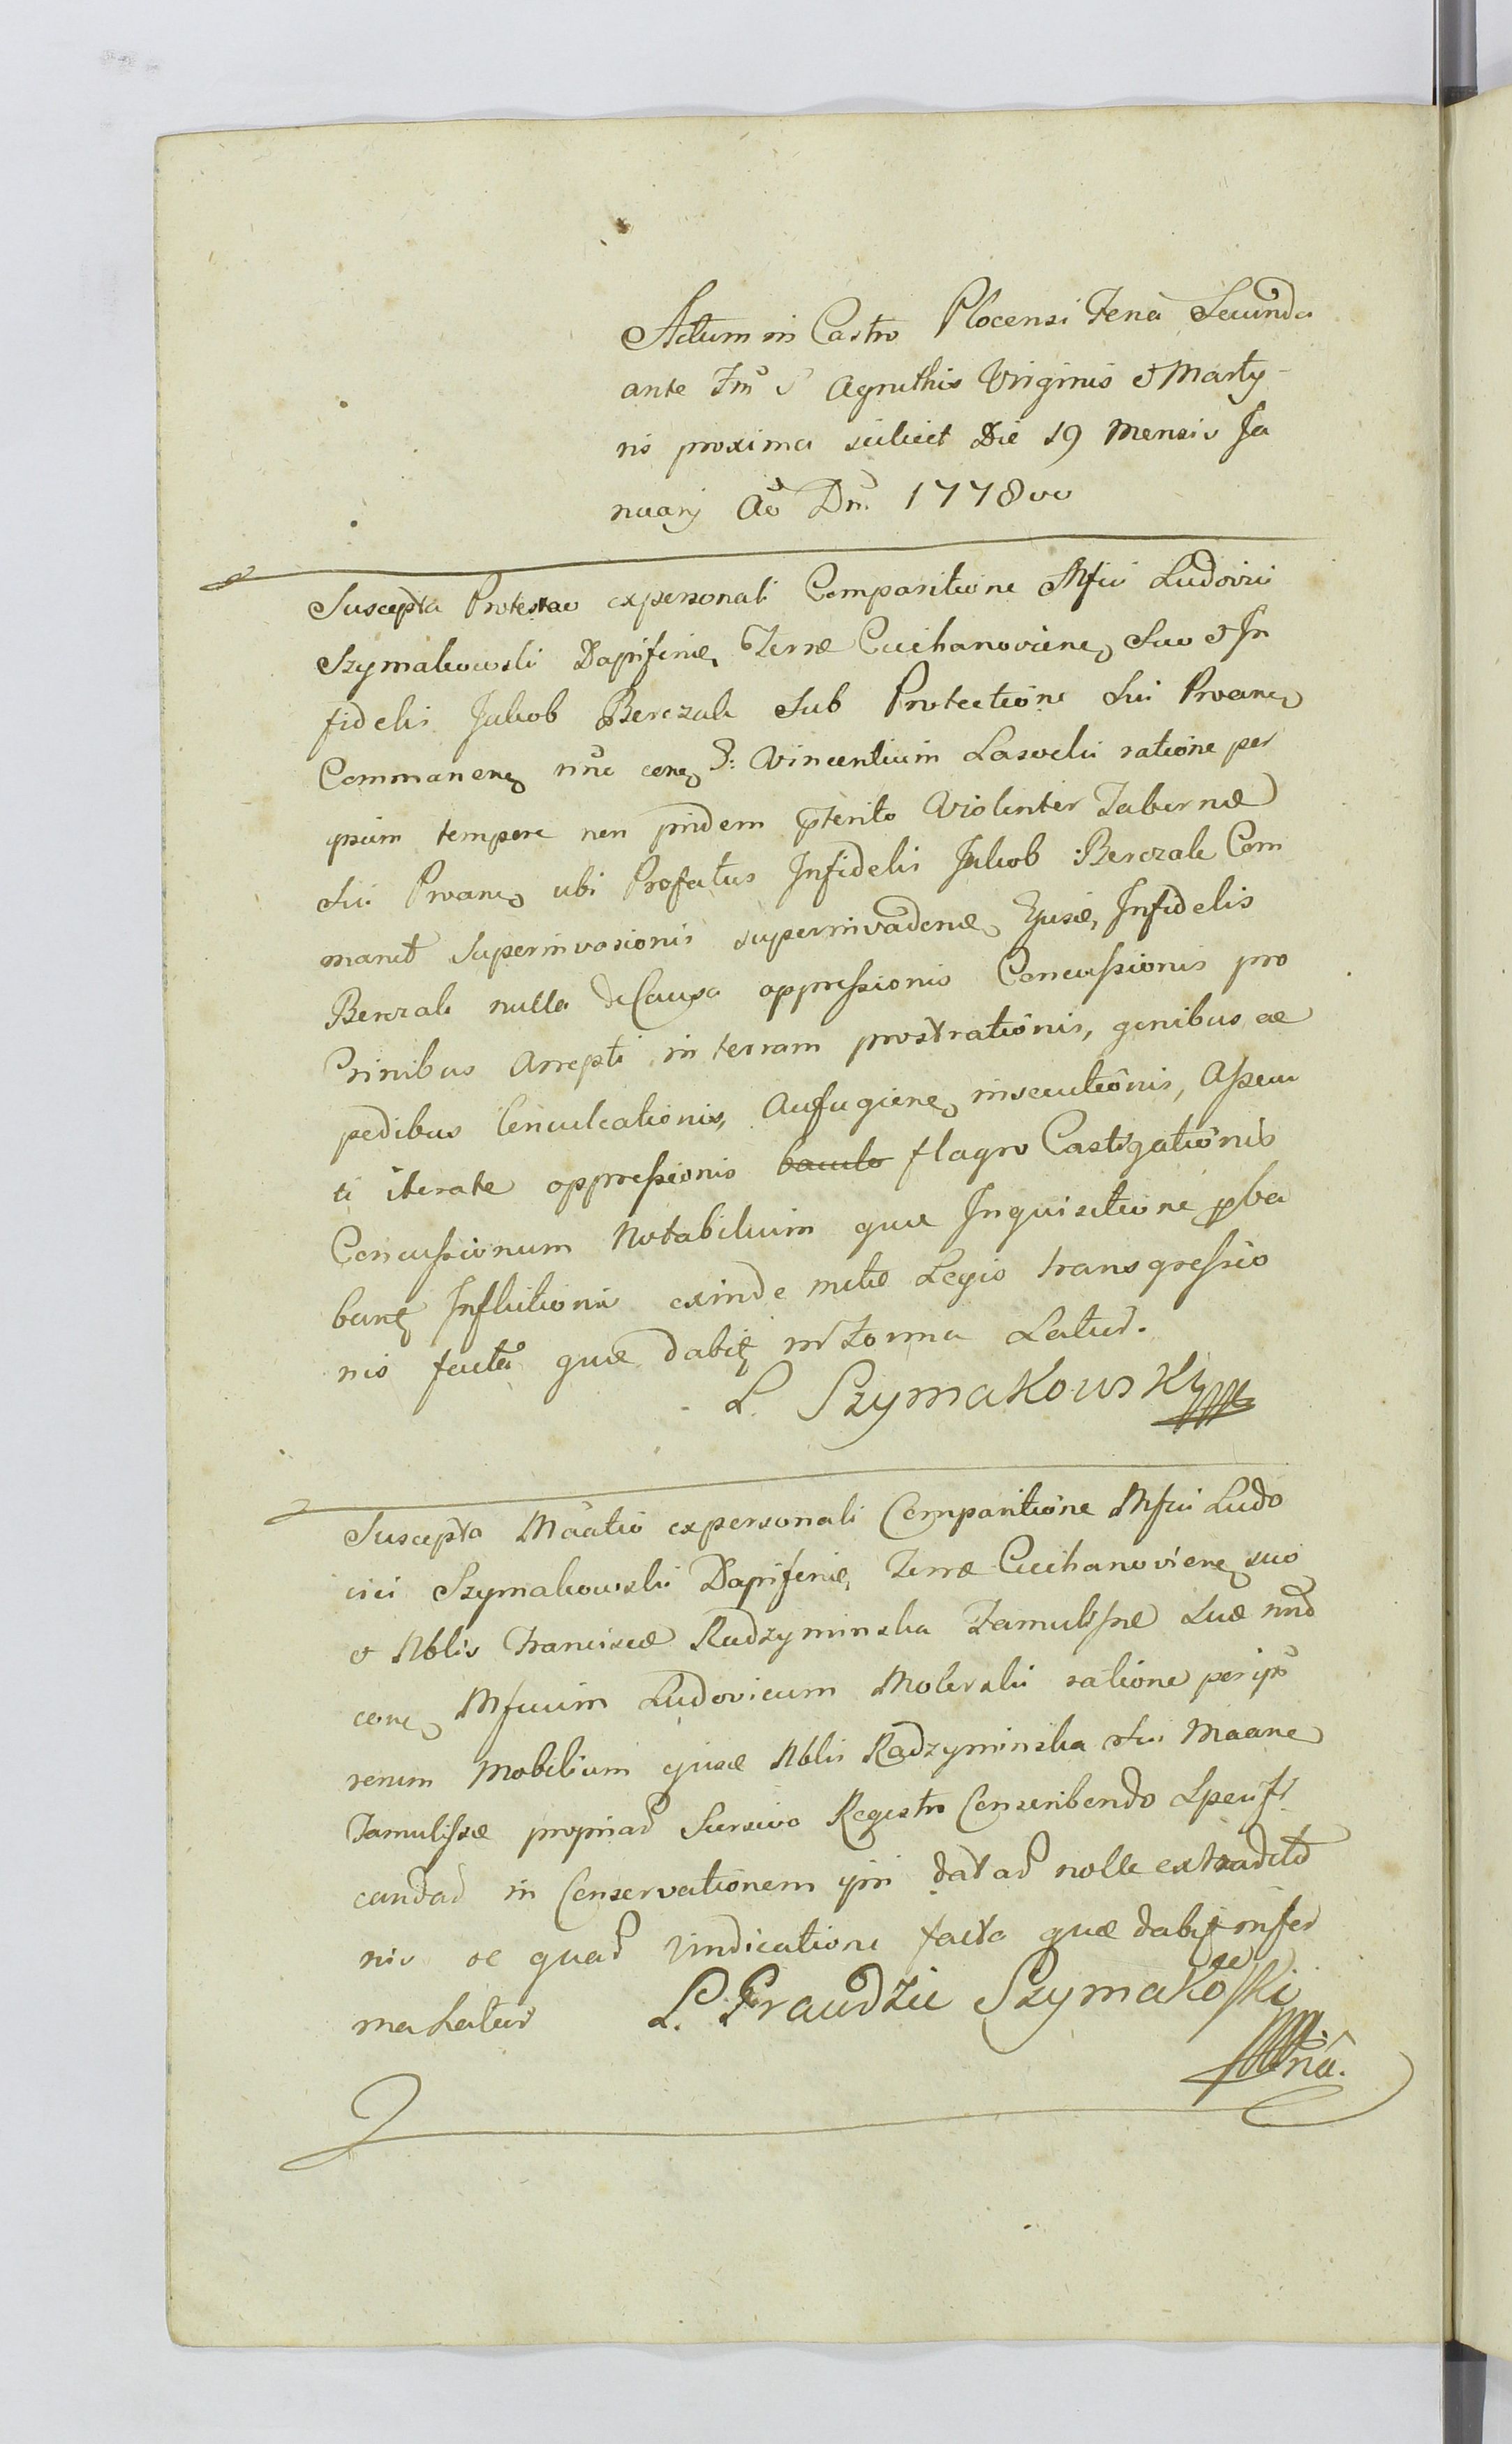 Actum in Castro Plocensi Feria Secunda
ante Fm S Agnethis Virginis et Marty-
ris proxima scilicet Die 19 Mensis Ja
nuarij Aõ Dni 1778vo
Suscepta Protestao expersonali Comparitione Mfici Ludovici
Szymakowski Dapiferiae Terrae Ciechanoviens Suo et In
fidelis Jakob Berczak Sub Protectione Sui Proane
Commanen nne cone G: Vincentium Lasocki ratione per
ipsum tempore non pridem pterito Violenter Tabernae
Sui Proane ubi Profatus Infidelis Jakob Berczak Com
manet Superinvasionis superinvadendae, Ejusde Infidelis
Berczak nulla de Causa oppressionis Concussionis pro
Crinibus Arrepti in terram prostrationis, genibus ae
pedibus Conculcationis, Aufugiene insecutionis, Assecu
ti iterate oppressionis baculo flagro Castigationis
Concussionum Notabilium quae Inquisitione pba
bunt Inflictionis exinde mctae Legis transgressio
nis facta quae dabit in Forma Latius.
L. Szymakowski
Suscepta Maatio expersonali Comparitione Mfici Ludo
vici Szymakowski Dapiferiae Terrae Ciechanoviens suo
et Nblis Franciscae Radzyminska Famulissae Suae nne
cone Mficum Ludovicum Molewski ratione per ips
rerum Mobilium ejusde Nblis Radzyminska Sui Maane
Famulissae propriar Sursivo Registro Conscribendo Specifi
candar in Conservationem ipsi datar nolle extradit
nis ae quar vindicatione facta quae dabit in for
ma Latius L. Prawdzic Szymakowski
mã.